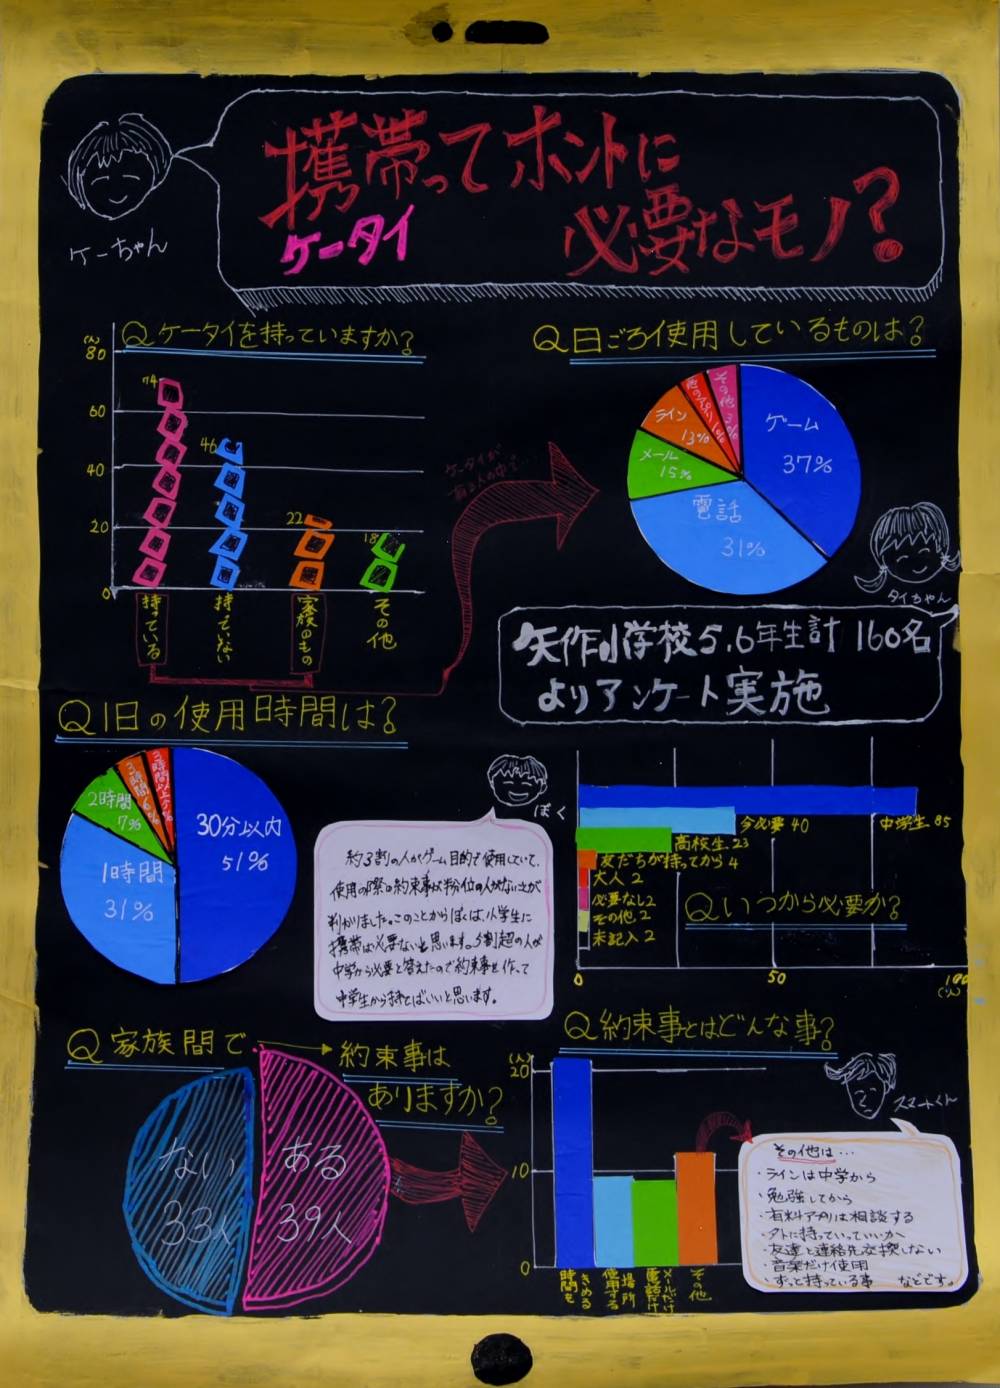 携帯ってホントに
ケータイ
必要なモノ?
ケーちゃん
Qケータイを持っていますか?
(人)
80
60
40
20
0
74
46
22
18
持っている
持っていない
家族のもの
その他
ケータイが
Q日ごろ使用しているものは?
ゲーム
37%
電話
31%
メール
15%
ライン
13%
その他
タイちゃん
矢作小学校5.6年生計 160名
よりアンケート実施
Q1日の使用時間は?
30分以内
51%
1時間
31%
2時間
7%
3時間
6%
3時間以上
ぼく
約3割の人がゲーム目的で使用していて、
使用の際の約束事が半分位の人がないことが
判かりました。このことからぼくは、小学生に
携帯は必要ないと思います。5割超の人が
中学から必要と答えたので約束事を作って
中学生から持てばいいと思います。
中学生 85
今必要 40
高校生 23
友だちが持ってから 4
大人 2
必要なし2
その他 2
未記入 2
Qいつから必要か?
0
50
100
(人)
Q家族間で
約束事は
ありますか?
ない
33人
ある
39人
Q約束事とはどんな事?
(人)
20
10
0
時間をきめる
使用する場所
メールだけ電話だけ
その他
スマートくん
その他は…
・ラインは中学から
・勉強してから
・有料アプリは相談する
・外に持っていっていいか
・友達と連絡先交換しない
・音楽だけ使用
・ずっと持っている事 などです。